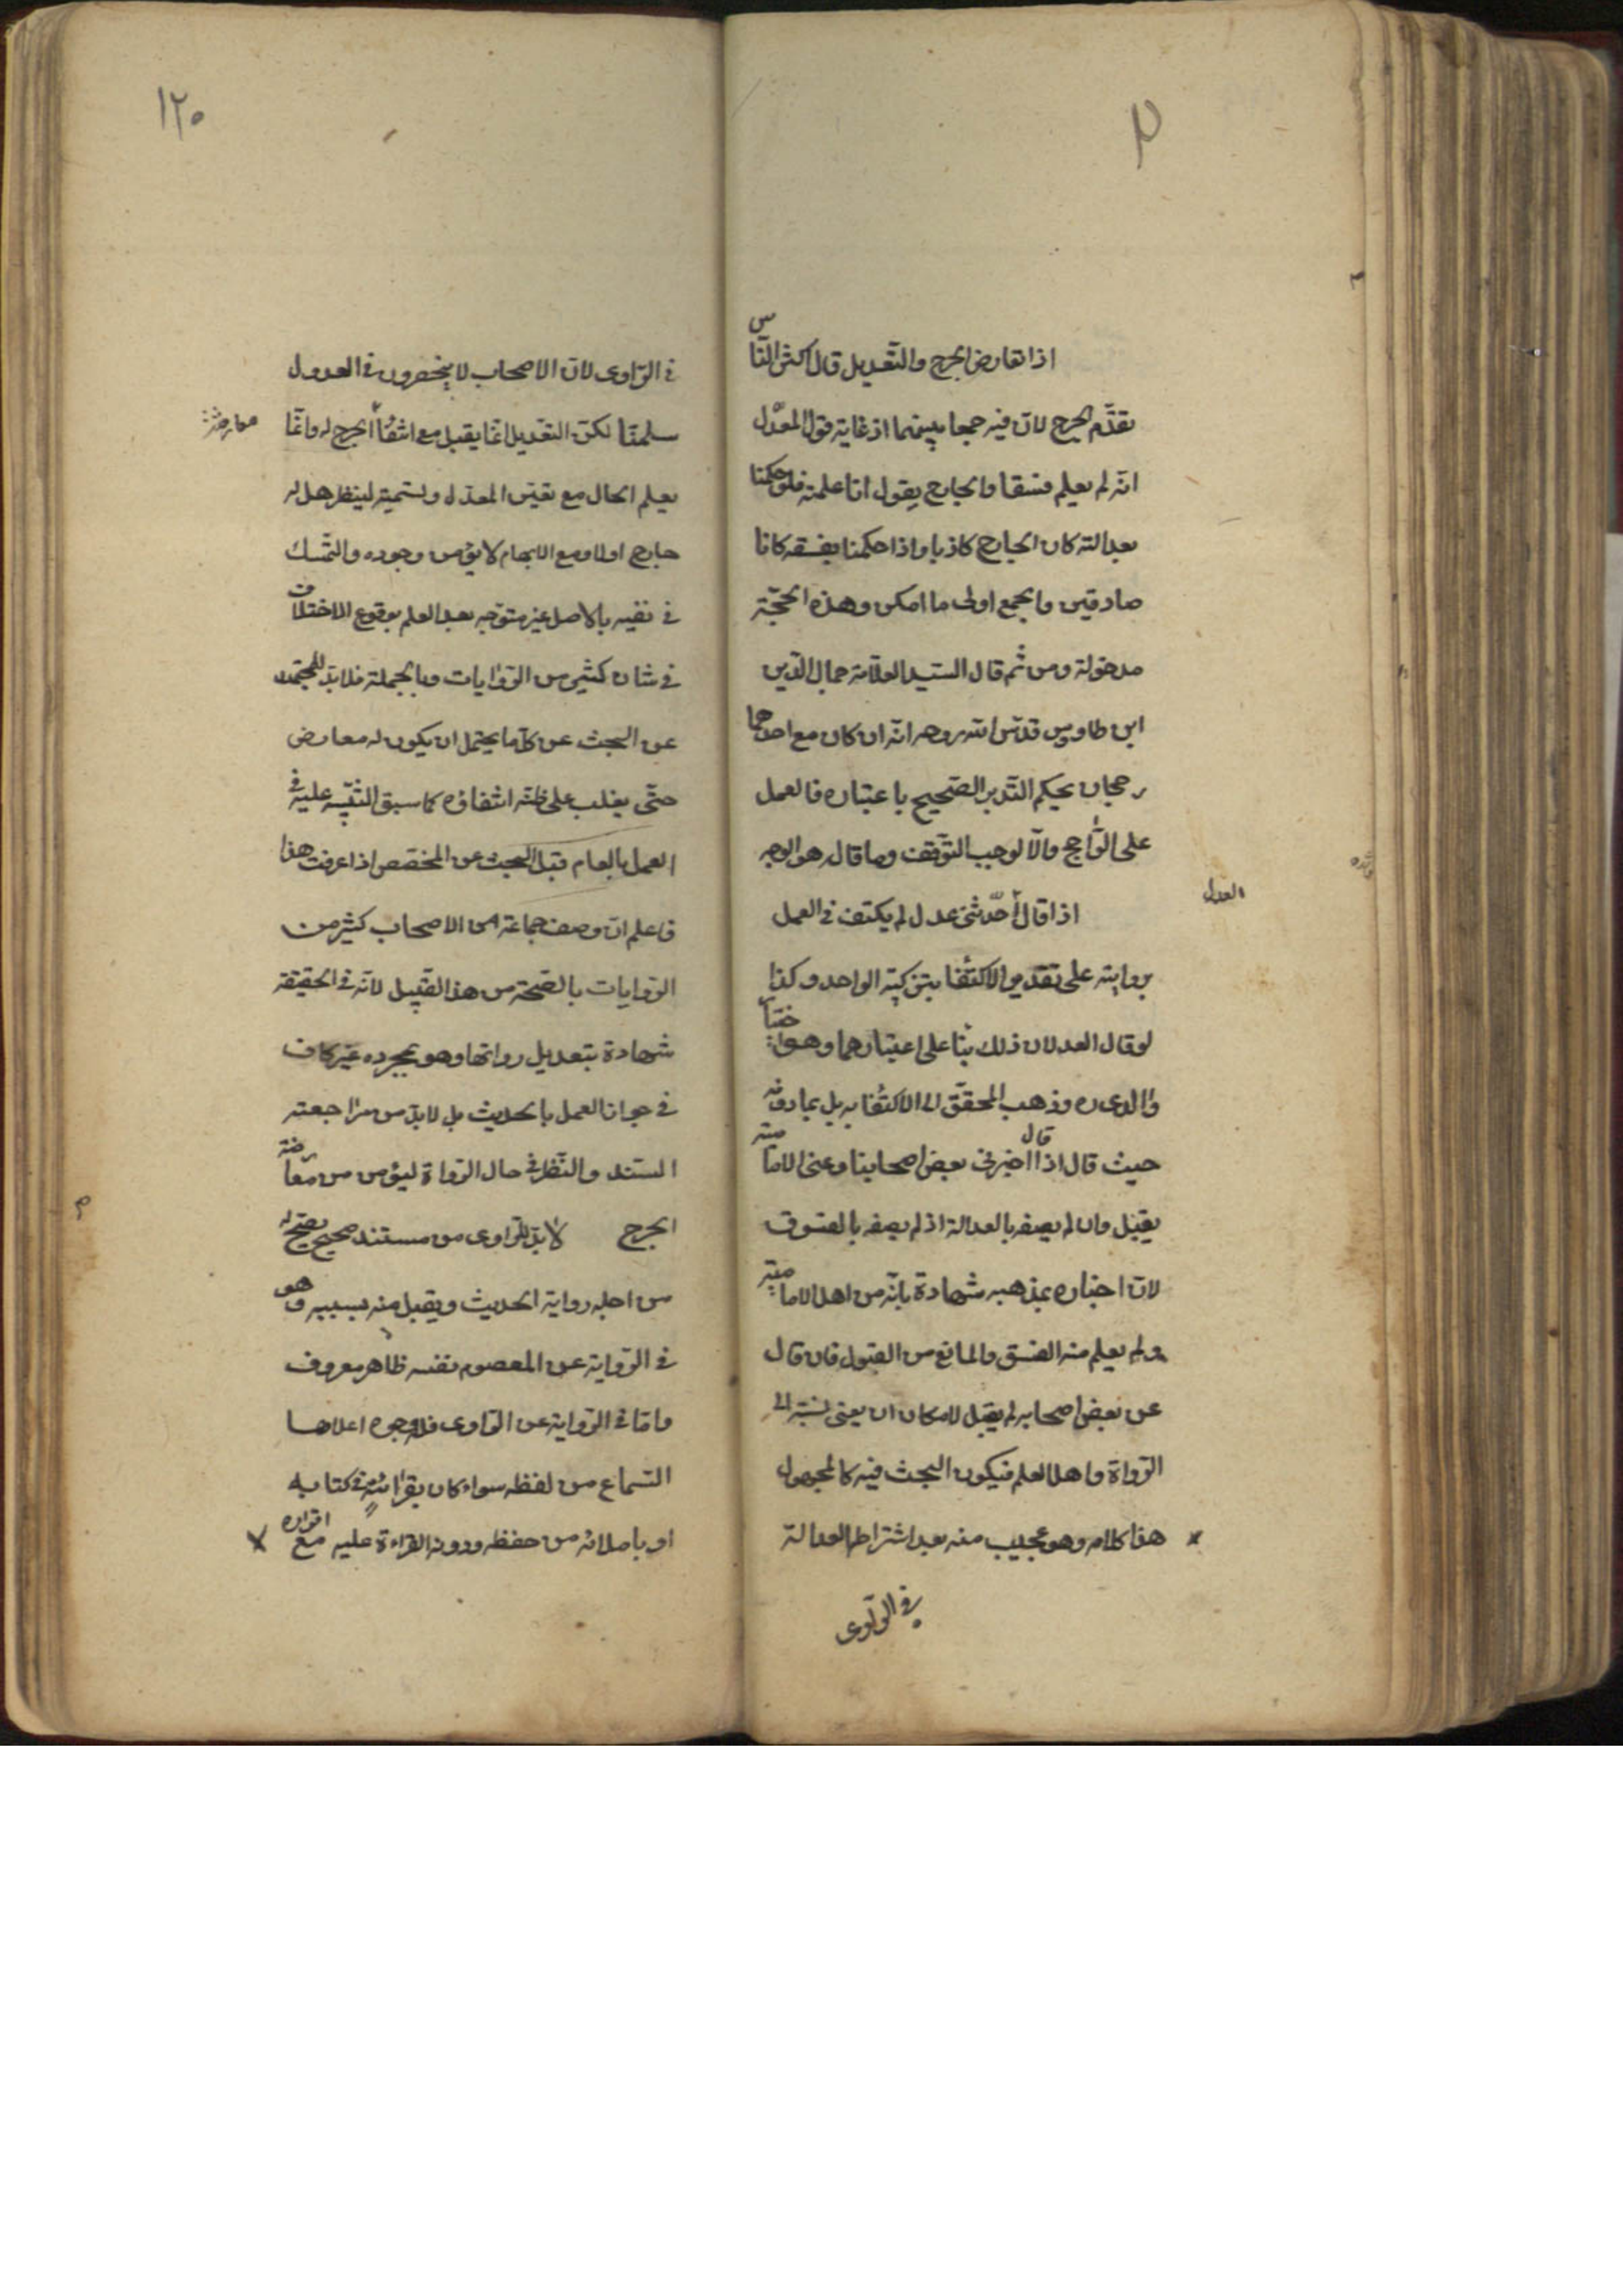 اذا تعارض الجرح والتعديل قال اكثر الناس
يقدّم الجرح لانّ فيه جمعا بينهما اذ غاية قول المعدّل
انّه لم يعلم فسقا والجارح يقول انا علمته فلو حكمنا
بعدالته كان الجارح كاذبا واذا حكمنا بفسقه كانا
صادقين والجمع اولى ما امكن وهذه الحجّة
مدخولة ومن ثم قال السيد العلّامة جمال الدّين
ابن طاوس قدّس الله روحه انّه ان كان مع احدهما
رجحان يحكم التدبر الصحيح باعتباره فالعمل
على الرّاجح والّا لوجب التوقّف وما قاله هو الوجه
العدل
اذا قال حدّثنى عدل لم يكتف فى العمل
بروايته على تقدير الاكتفا بتزكية الواحد وكذا
لو قال العدلان ذلك بنا على اعتبارهما وهو اختيار
والدى ره وذهب المحقّق الى الاكتفا به بل بما دونه
حيث قال اذا قال اخبرنى بعض اصحابنا وعنى الامامية
يقبل وان لم يصفه بالعدالة اذ لم يصفه بالفسوق
لان اخباره بمذهبه شهادة بانّه من اهل الامامية
ولم يعلم منه الفسق والمانع من القبول فان قال
عن بعض اصحابه لم يقبل لامكان ان يعنى نسبته الى
الرّواة واهل العلم فيكون البحث فيه كالمجهول
هذا كلامه وهو عجيب منه بعد اشتراط العدالة
فى الرّاوى
١٢٠
فى الرّاوى لان الاصحاب لا ينحصرون فى العدول
سلمنا لكن التعديل انّما يقبل مع انتفا الجرح له وانّما
يعلم الحال مع تعيّن المعدّل وتسميته لينظر هل له
جارح اولا ومع الابهام لا يؤمن وجوده والتمسّك
فى نفيه بالاصل غير متوّجه بعد العلم بوقوع الاختلاف
فى شان كثير من الرّوايات وبالجملة فلا بدّ للمجتهد
عن البحث عن كلّ ما يحتمل ان يكون له معارض
حتّى يغلب على ظنّه انتفاؤه كما سبق التنبّيه عليه فى
العمل بالعام قبل البحث عن المخصص اذا عرفت هذا
فاعلم انّ وصف جماعة من الاصحاب كثير من
الرّوايات بالصّحة من هذا القبيل لانّه فى الحقيقة
شهادة بتعديل رواتها وهو بمجرده غير كاف
فى جواز العمل بالحديث بل لابدّ من مراجعته
السّند والنّظر فى حال الرّواة ليؤمن من معارضة
الجرح لابدّ للرّاوى من مستند صحيح يصحّ له
من اجله رواية الحديث ويقبل منه بسببه وهو
فى الرّواية عن المعصوم نفسه ظاهر معروف
وامّا فى الرّواية عن الرّاوى فله وجوه اعلاها
السّماع من لفظه سواء كان بقرائة فى كتابه
او باملائه من حفظه ودونه القراءة عليه مع اقراره